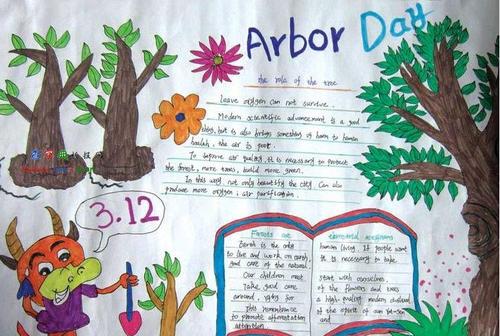 Arbor Day
the role of the tree
Leave oxygen can not survive.
Modern scientific advancement is a good
thing, but it also brings something of harm to human
health, the air is poor.
To improve air quality, it is necessary to protect
the forest, more trees, build more green.
In this way not only beautify the city can also
produce more oxygen, air purification.
3.12
Forests are
Earth is the only
to live and work on earth,
good care of the natural.
Our children meet
Take good care
around, for
this remembrance
to promote afforestation
attention
terrestrial ecosystems
human living. If people want
it is necessary to take
start with ourselves,
of the flowers and trees
a high quality modern
of the spirit of
and